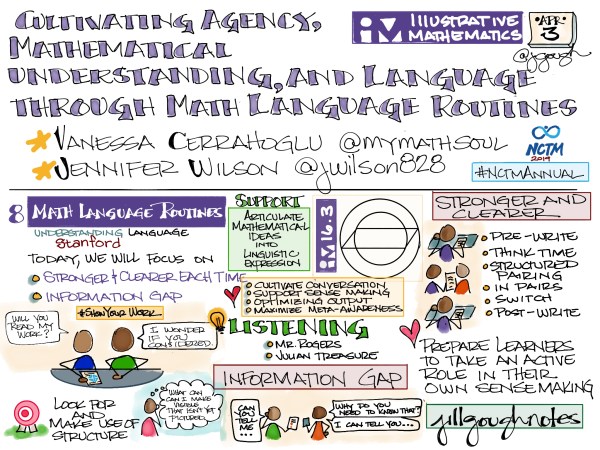 Cultivating Agency,
Mathematical
Understanding, and Language
through Math Language Routines
iM Illustrative
Mathematics
APR.
3
@jgough
Vanessa Cerrahoglu @mymathsoul
Jennifer Wilson @jwilson828
NCTM
2019
#NCTMAnnual
8 Math Language Routines
Understanding Language
Stanford
Today, we will focus on
Stronger & Clearer Each Time
Information Gap
Support
Articulate
Mathematical
Ideas
into
Linguistic
Expression
iM 6.3
Cultivate Conversation
Support Sense Making
Optimizing Output
Maximize Meta-Awareness
Stronger and
Clearer
Pre-Write
Think Time
Structured
Pairing
in Pairs
Switch
Post-Write
#ShowYourWork
Will you
read my
work?
I wonder
if you
considered..
Listening
Mr. Rogers
Julian Treasure
Prepare learners
to take an active
role in their
own sensemaking
Look for
and
make use of
structure
What can
can I make
visible
that isn't yet
pictured
Information Gap
Can
you
tell
me
...
Why do you
need to know that?
I can tell you...
jillgoughnotes